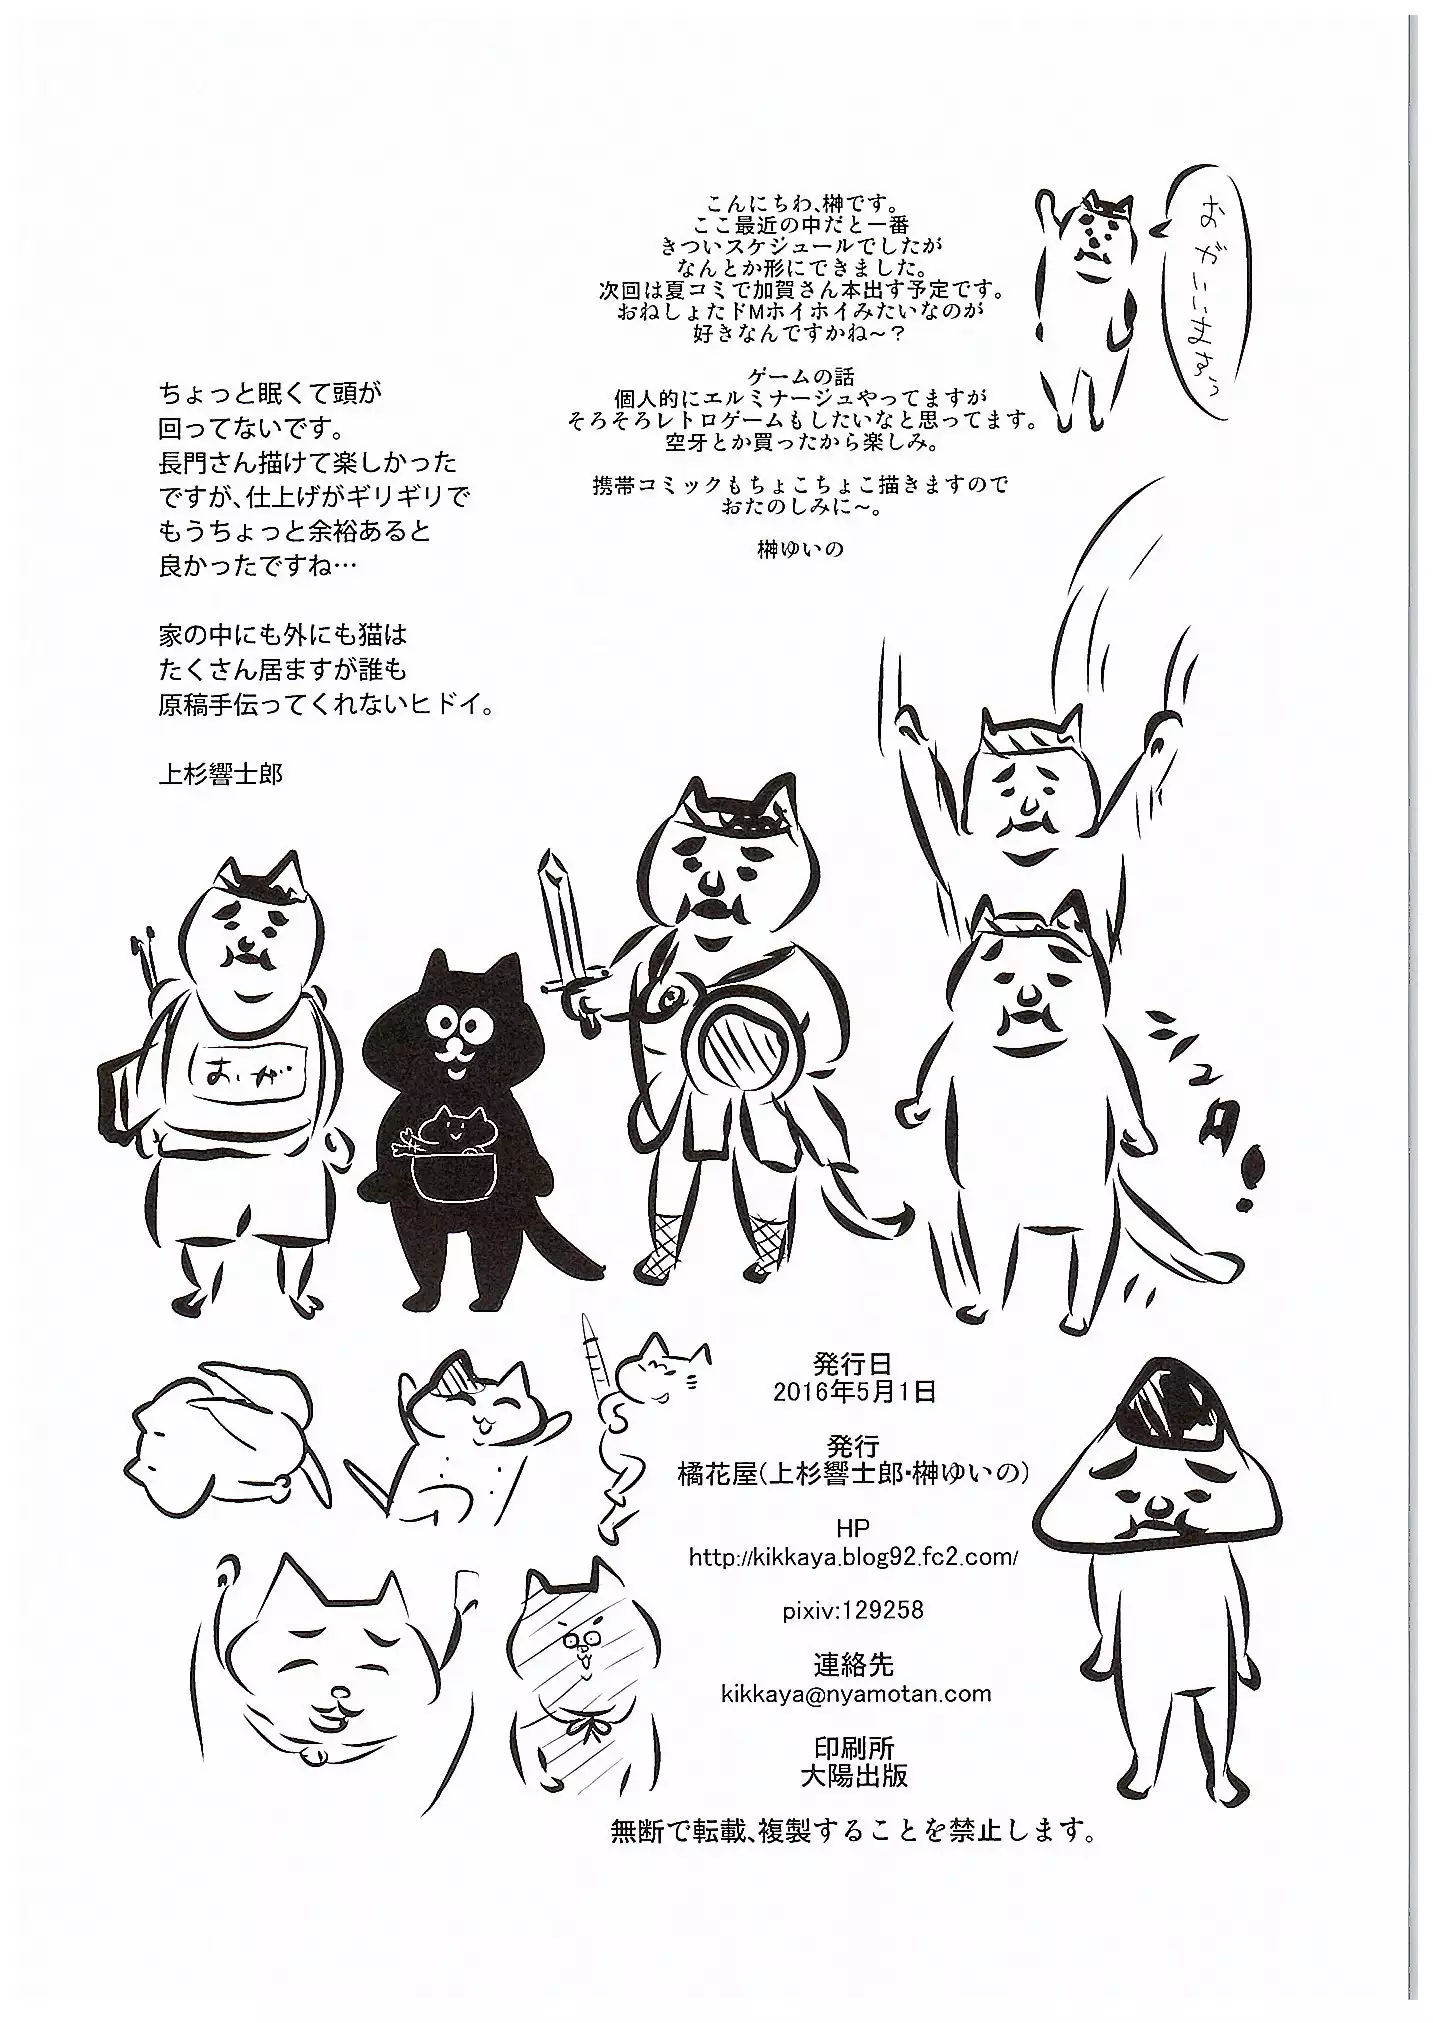 こんにちわ、榊です。
ここ最近の中だと一番
きついスケジュールでしたが
なんとか形にできました。
次回は夏コミで加賀さん本出す予定です。
おねしょたドMホイホイみたいなのが
好きなんですかね～？
ゲームの話
個人的にエルミナージュやってますが
そろそろレトロゲームもしたいなと思ってます。
空牙とか買ったから楽しみ。
携帯コミックもちょこちょこ描きますので
おたのしみに～。
榊ゆいの
おがいいますぅ
ちょっと眠くて頭が
回ってないです。
長門さん描けて楽しかった
ですが、仕上げがギリギリで
もうちょっと余裕あると
良かったですね…
家の中にも外にも猫は
たくさん居ますが誰も
原稿手伝ってくれないヒドイ。
上杉響士郎
おが
シュタ!
発行日
2016年5月1日
発行
橘花屋(上杉響士郎・榊ゆいの)
HP
http://kikkaya.blog92.fc2.com/
pixiv:129258
連絡先
kikkaya@nyamotan.com
印刷所
大陽出版
無断で転載、複製することを禁止します。